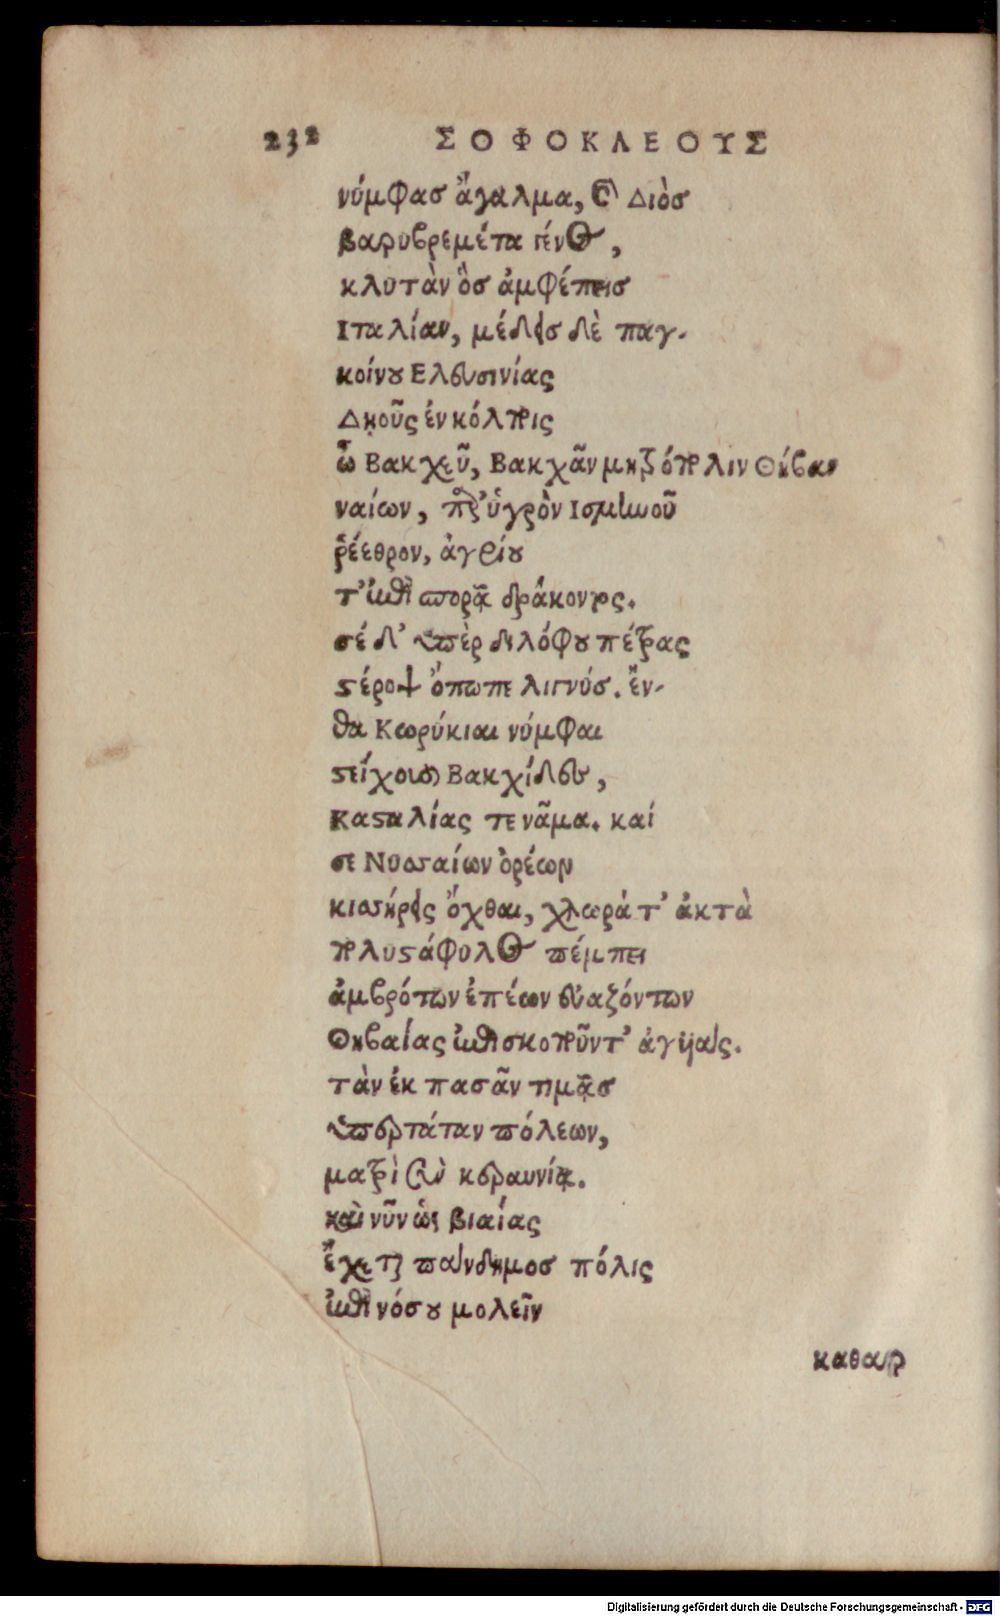 232 ΣΟΦΟΚΛΕΟΥΣ
νύμφας ἄγαλμα, καὶ Διὸς
βαρυβρεμέτα γένος,
κλυτὰν ὃς ἀμφέπεις
Ιταλίαν, μέδεις δὲ παγ-
κοίνου Ελευσινίας
Δῃοῦς ἐν κόλποις
ὦ Βακχεῦ, Βακχᾶν μητρόπολιν Θήβαν
ναίων, παρ' ὑγρὸν Ισμηνοῦ
ῥέεθρον, ἀγρίου
τ' ἐπὶ σπορᾷ δράκοντος.
σέ δ' ὑπὲρ διλόφου πέτρας
στέροψ ὄπωπε λιγνύς. ἔν-
θα Κωρύκιαι νύμφαι
στείχουσι Βακχίδες,
Κασταλίας τε νᾶμα. καί
σε Νυσαίων ὀρέων
κισσήρεις ὄχθαι, χλωρά τ' ἀκτὰ
πολυστάφυλος πέμπει
ἀμβρότων ἐπέων εὐαζόντων
Θηβαίας ἐπισκοποῦντ' ἀγυιάς.
τὰν ἐκ πασᾶν τιμᾷς
ὑπερτάταν πόλεων,
ματρὶ σὺν κεραυνίᾳ.
καὶ νῦν ὡς βιαίας
ἔχεται πάνδημος πόλις
ἐπὶ νόσου μολεῖν
καθαρ
Digitalisierung gefördert durch die Deutsche Forschungsgemeinschaft - DFG